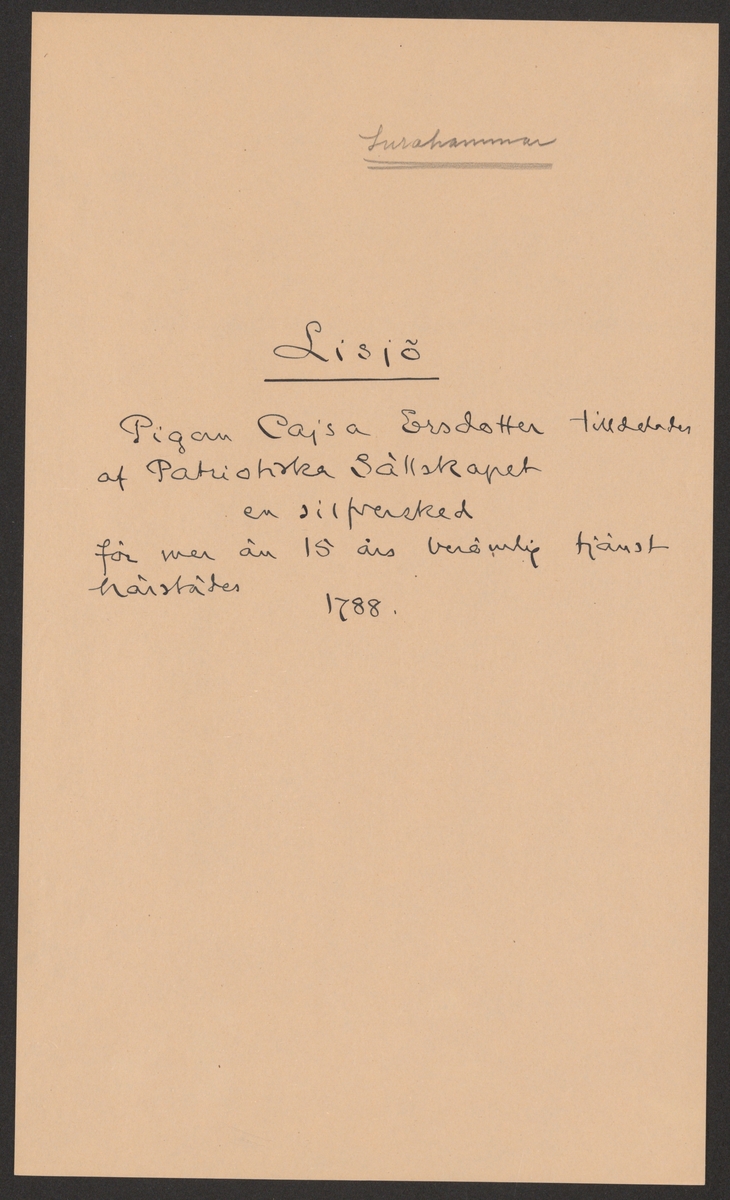 Surahammar
Lisjö
Pigan Cajsa Ersdotter tilldelades
af Patriotiska Sällskapet
en silfversked
för mer än 15 års berömlig tjänst
härstädes
1788.